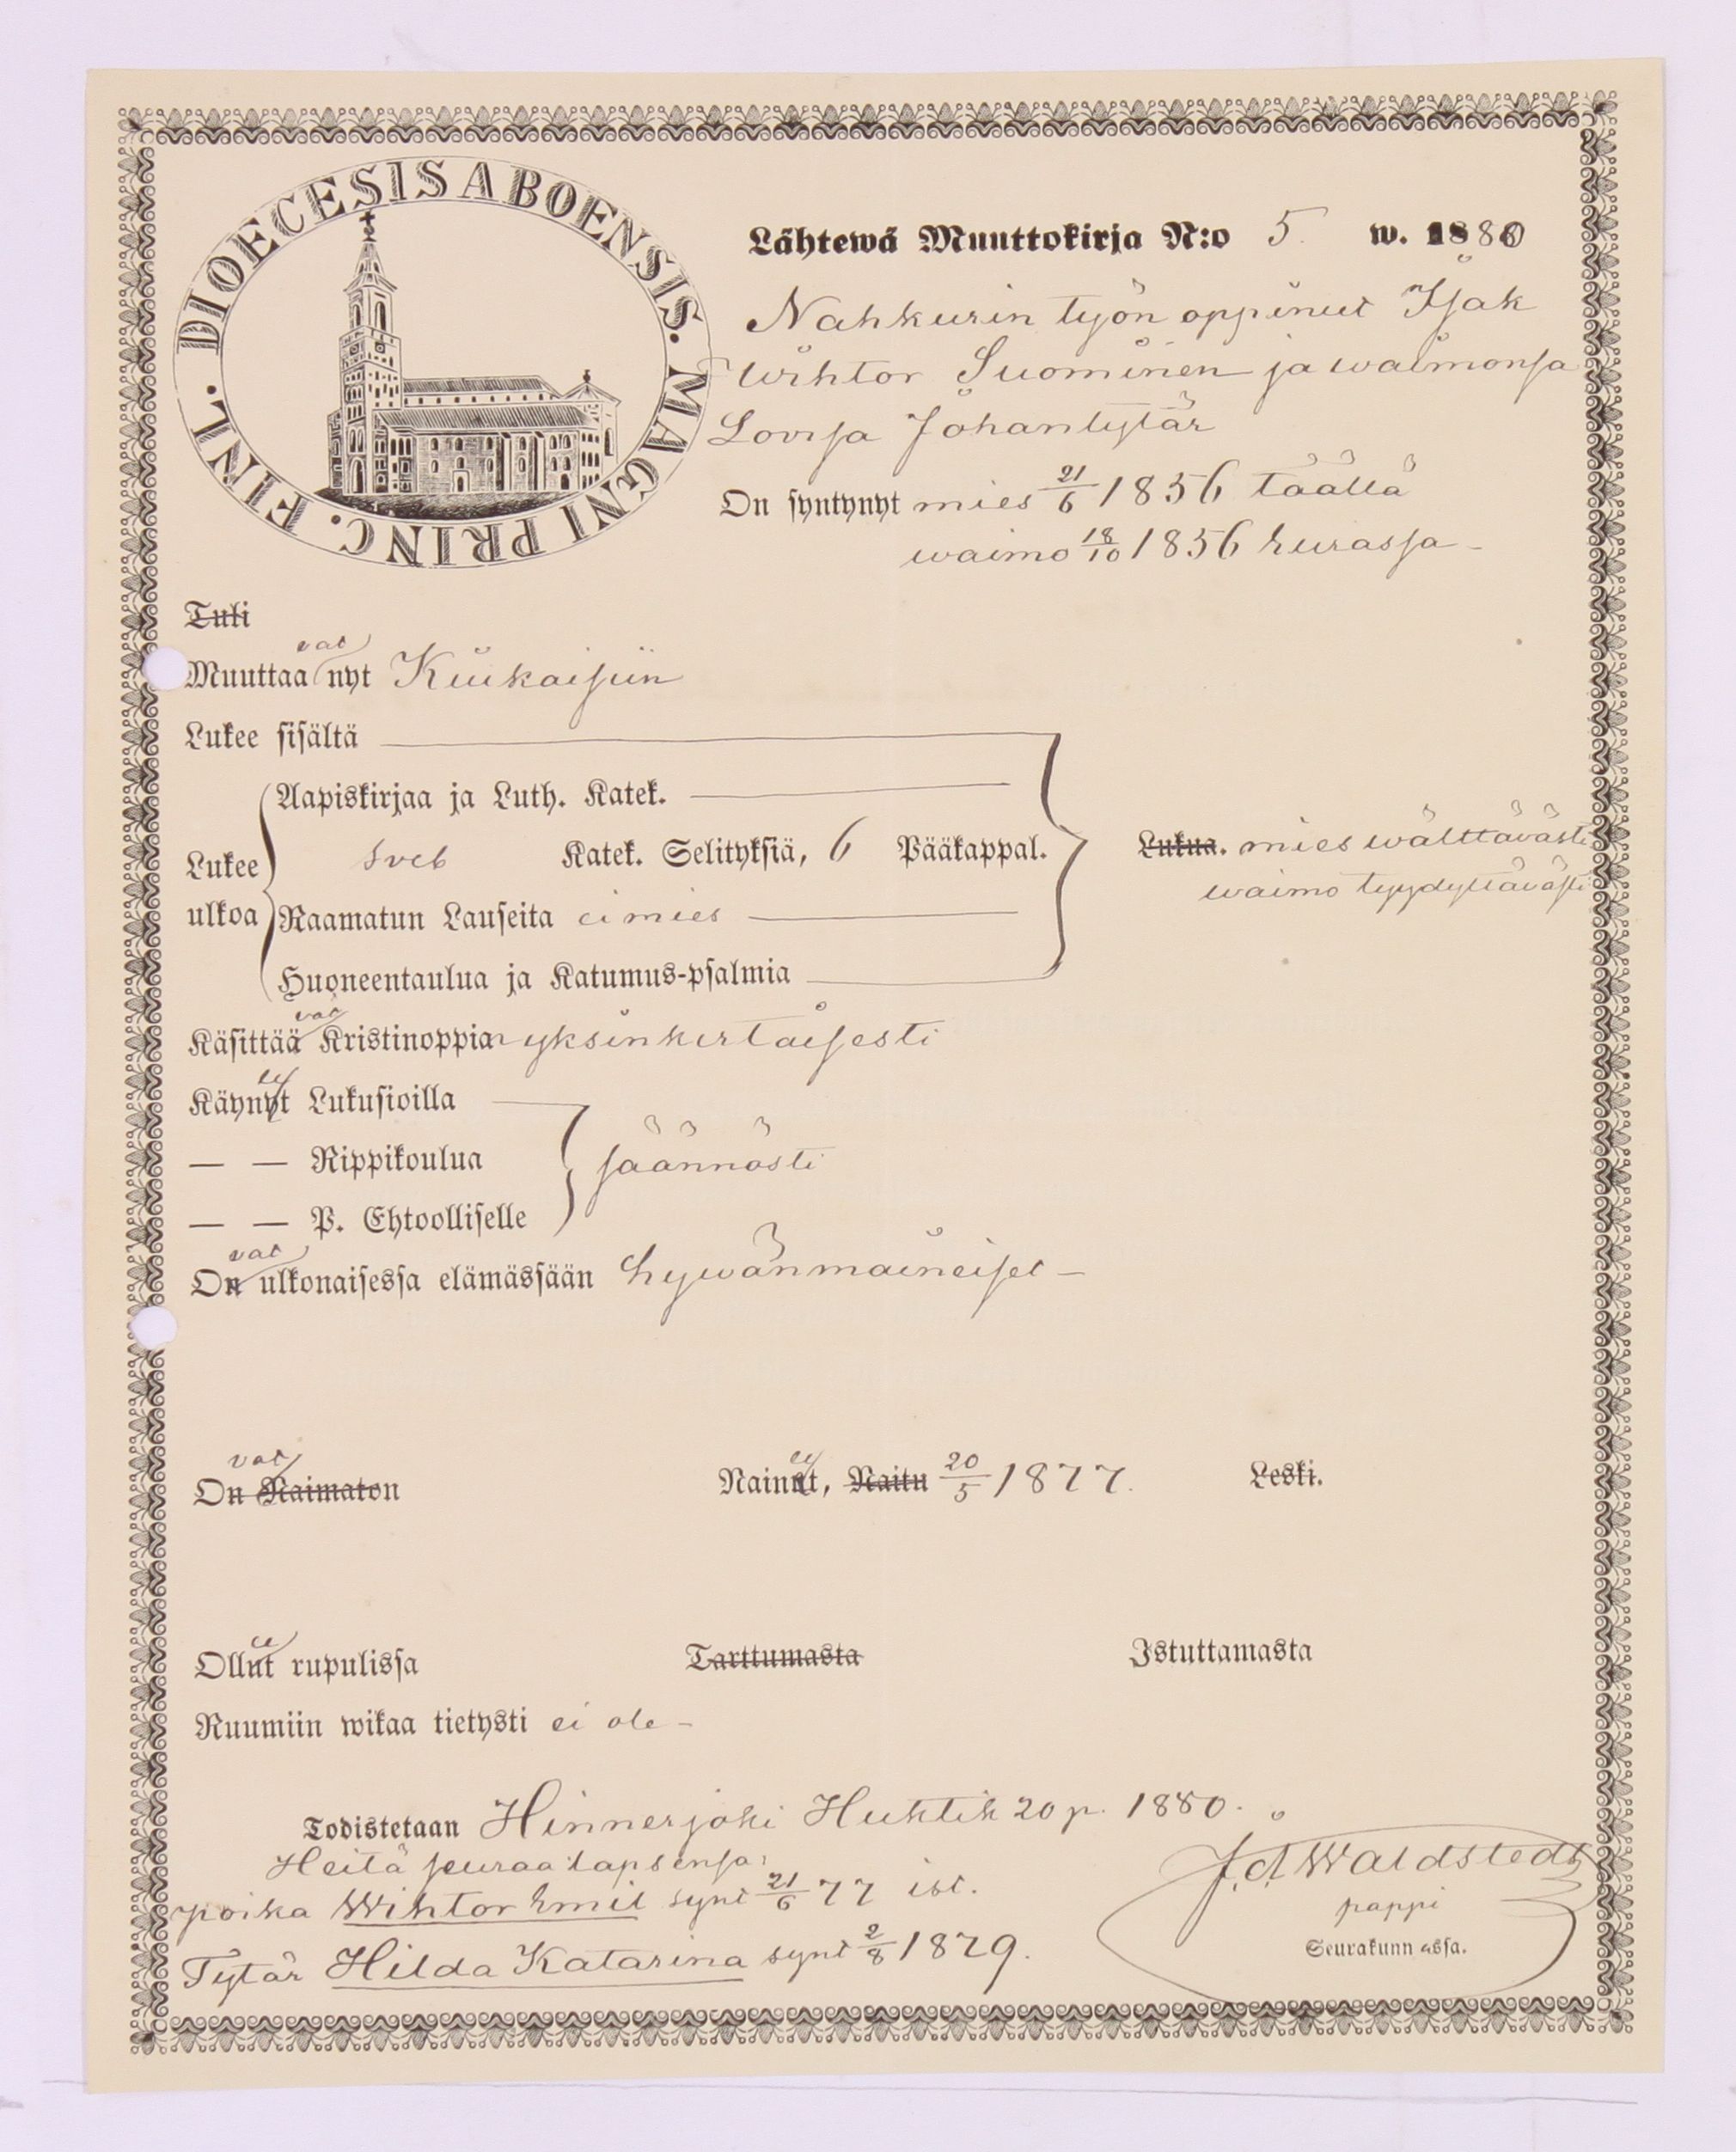 DIOECESIS ABOENSIS. MAGNI PRINC. FINL.
Lähtewä Muuttokirja N:o 5. w. 1880
Nahkurin työn oppinut Isak
Wihtor Suominen ja waimonsa
Lovisa Johantytär
On syntynyt mies 21/6 1856 täällä
waimo 18/10 1856 Eurassa -
Tuli
vat
Muuttaa nyt Kiukaisiin
Lukee sisältä
Aapiskirjaa ja Luth. Katek.
Lukee ulkoa Sveb Katek. Selityksiä, 6 Pääkappal. Lukua. mies wälttäwästi
waimo tyydyttäwästi
Raamatun Lauseita ei mies
Huoneentaulua ja Katumus-psalmia
vat
Käsittää Kristinoppia yksinkertaisesti
ee
Käynyt Lukusioilla
— — Rippikoulua säännösti
— — P. Ehtoolliselle
vat
On ulkonaisessa elämässään hywänmaineiset -
vat
On Naimaton Nainut, Naitu 20/5 1877. Leski.
ee
Ollut rupulissa Tarttumasta Istuttamasta
Ruumiin wikaa tietysti ei ole -
Todistetaan Hinnerjoki Huhtik 20 p. 1880.
Heitä seuraa lapsensa:
poika Wihtor Emil synt 21/6 77 ist.
Tytär Hilda Katarina synt 2/8 1879.
J. A. Waldstedt
pappi
Seurakunnassa.